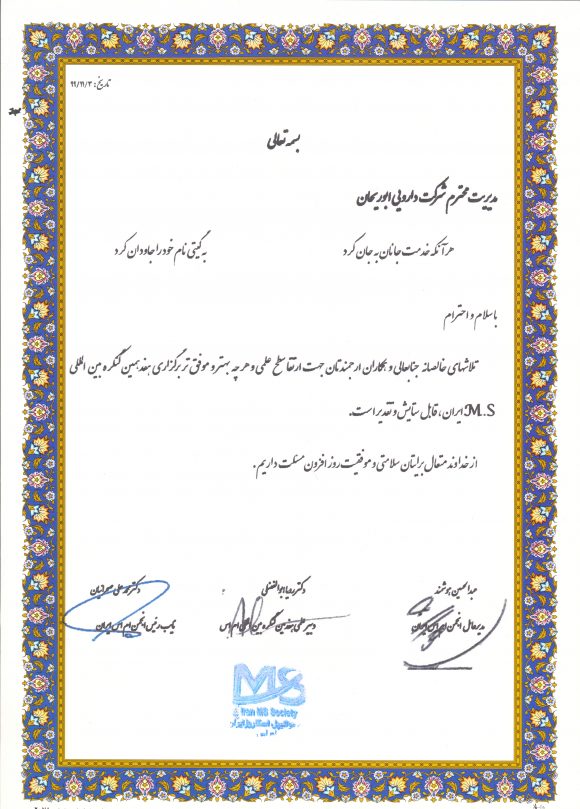 تاریخ: ۹۹/۱۱/۳
بسمه تعالی
مدیریت محترم شرکت دارویی ابوریحان
هرآنکه خدمت جانان به جان کرد به گیتی نام خود را جاودان کرد
با سلام و احترام
تلاشهای خالصانه جنابعالی و همکاران ارجمندتان جهت ارتقا سطح علمی و هر چه بهتر و موفق تر برگزاری هفدهمین کنگره بین المللی
M.S ایران، قابل ستایش و تقدیر است.
از خداوند متعال برایتان سلامتی و موفقیت روز افزون مسئلت داریم.
عبدالحسین هوشمند دکتر رضا ابوالفضلی دکتر محمد علی صحرائیان
مدیرعامل انجمن ام اس ایران دبیر علمی هفدهمین کنگره بین المللی ام اس نایب رئیس انجمن ام اس ایران
MS
Iran MS Society
مولتیپل اسکلروز ایران